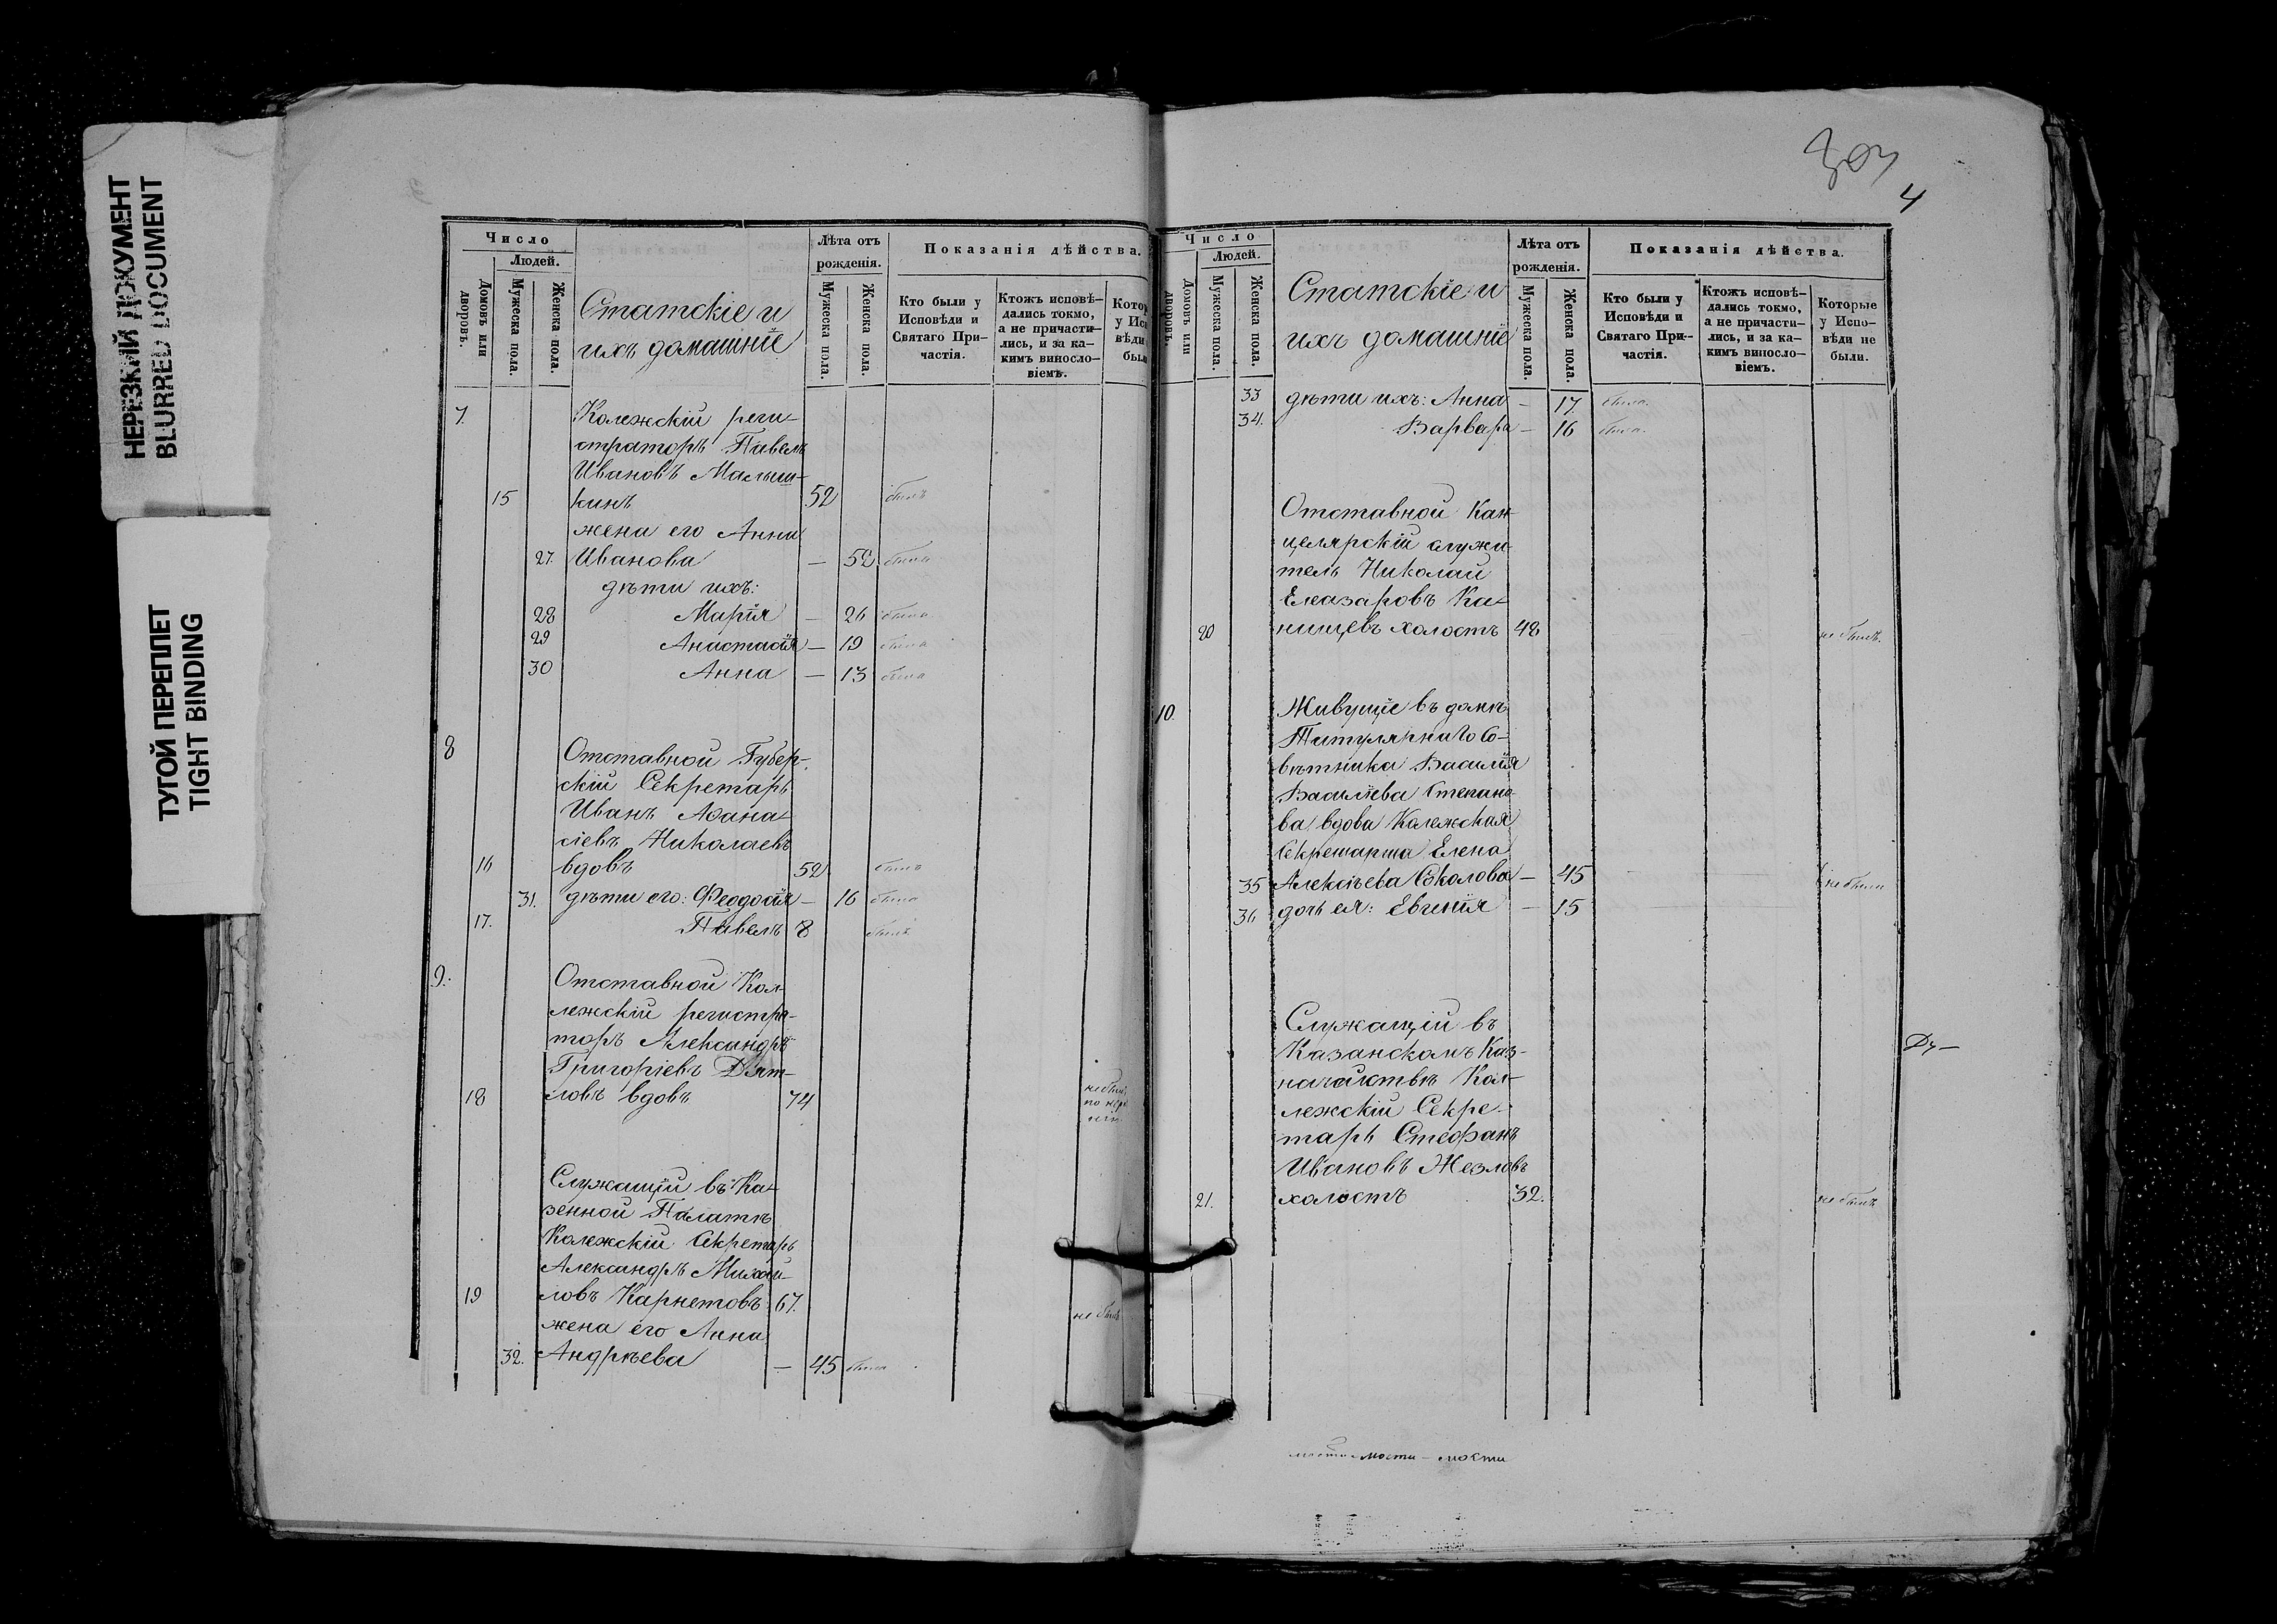 НЕРЕЗКИЙ ДОКУМЕНТ
BLURRED DOCUMENT
ТУГОЙ ПЕРЕПЛЕТ
TIGHT BINDING
Число
Людей.
Домовъ или дворовъ.
Мужеска пола.
Женска пола.
Статскіе и
ихъ домашніе
Лѣта отъ
рожденія.
Мужеска пола.
Женска пола.
Показанія дѣйства.
Кто были у
Исповѣди и
Святаго При-
частія.
Ктожъ исповѣ-
дались токмо,
а не причасти-
лись, и за ка-
кимъ винosло-
віемъ.
Котор
у Исп
вѣди
был
7. Колежскій реги-
страторъ Павелъ
Ивановъ Малыш-
15 кинъ 52 былъ
жена его Анна
27. Иванова — 52 была
дѣти ихъ:
28 Марія — 26 была
29 Анастасія — 19 была
30 Анна — 13 была
8 Отставной Губер-
скій Секретарь
Иванъ Аѳана-
сіевъ Николаевъ
16 вдовъ 52 былъ
31. дѣти его: Феодосія — 16 была
17. Павелъ 8 былъ
9. Отставной Кол-
лежскій регистра-
торъ Александръ
Григоріевъ Дят-
18 ловъ вдовъ 74 не былъ
по
Служащій въ Ка-
зенной Палатѣ
Колежскій Секретарь
Александръ Михай-
19 ловъ Карнетовъ 67. не былъ
жена его Анна
32. Андрѣева — 45 была
303
4
Число
Людей.
Домовъ или дворовъ.
Мужеска пола.
Женска пола.
Статскіе и
ихъ домашніе
Лѣта отъ
рожденія.
Мужеска пола.
Женска пола.
Показанія дѣйства.
Кто были у
Исповѣди и
Святаго При-
частія.
Ктожъ исповѣ-
дались токмо,
а не причасти-
лись, и за ка-
кимъ виносло-
віемъ.
Которые
у Испо-
вѣди не
были.
33 дѣти ихъ: Анна — 17 была.
34. Варвара — 16 была.
Отставной Кан-
целярскій служи-
тель Николай
Елеазаровъ Ка-
20 нищевъ холостъ 48 не былъ.
10. Живущіе въ домѣ
Титулярнаго Со-
вѣтника Василія
Васильева Степано-
ва вдова Колежская
Секретарша Елена
35 Алексѣева Соколова — 45 — — не были
36 дочь ея: Евгенія — 15
Служащій въ
Казанскомъ Каз-
начействѣ Кол-
лежскій Секре-
тарь Стефанъ
Ивановъ Жезловъ
21. холостъ 32. не былъ
мости - мости